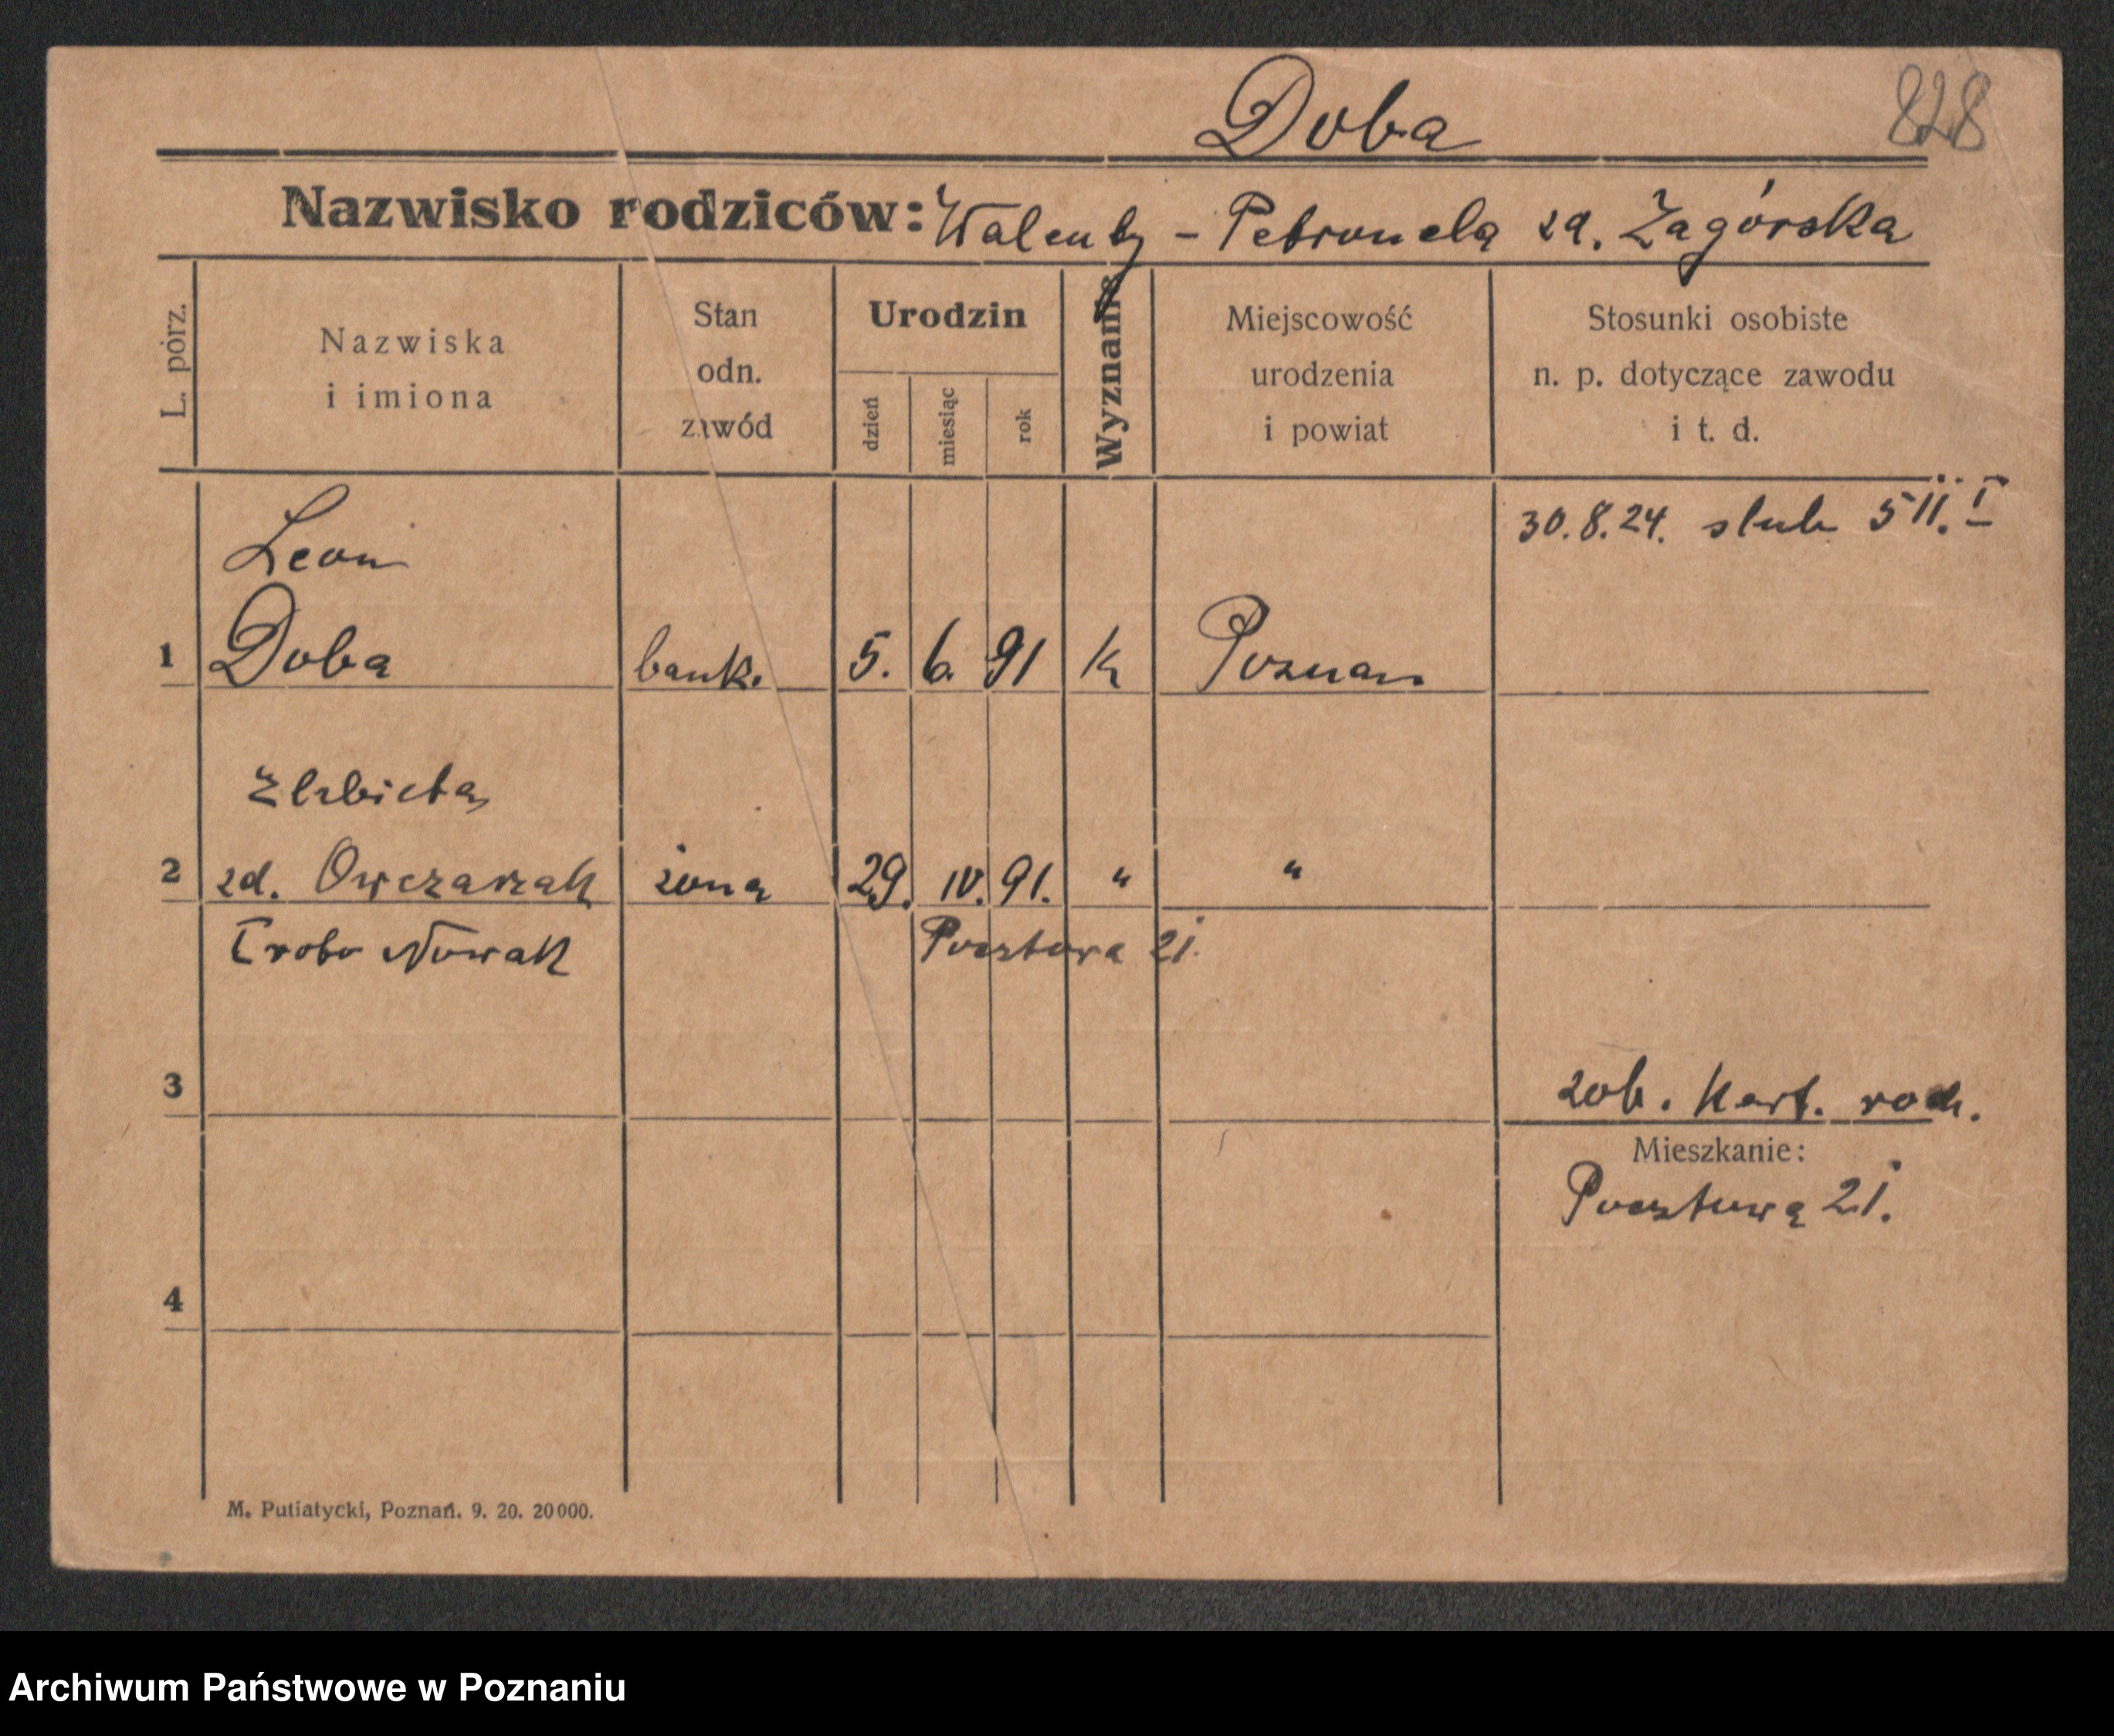 Doba 828
Nazwisko rodziców: Walenty - Petronela zd. Zagórska
L. porz.
Nazwiska
i imiona
Stan
odn.
zawód
Urodzin
dzień
miesiąc
rok
Wyznanie
Miejscowość
urodzenia
i powiat
Stosunki osobiste
n. p. dotyczące zawodu
i t. d.
30.8.24. slub
Leon
1 Doba bank. 5. 6. 91 k Poznan
Elzbieta
2 zd. Owczarzak zona 29. IV. 91. " "
Nowak Pocztowa 21.
3
zob. Kart. rodz.
Mieszkanie:
Pocztowa 21.
4
M. Putiatycki, Poznań. 9. 20. 20000.
Archiwum Państwowe w Poznaniu